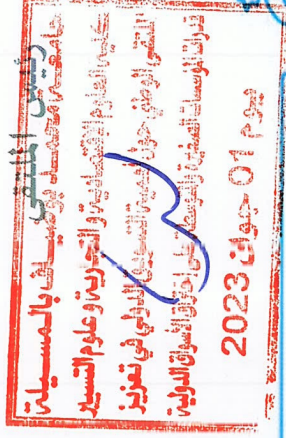 رئيس الملتقى
جامعة محمد بوضياف بالمسيلة
كلية العلوم الاقتصادية والتجارية وعلوم التسيير
الملتقى الوطني حول أهمية التسويق الدولي في تعزيز
قدرات المؤسسات الصغيرة والمتوسطة على اختراق الأسواق الدولية
يوم 01 جوان 2023